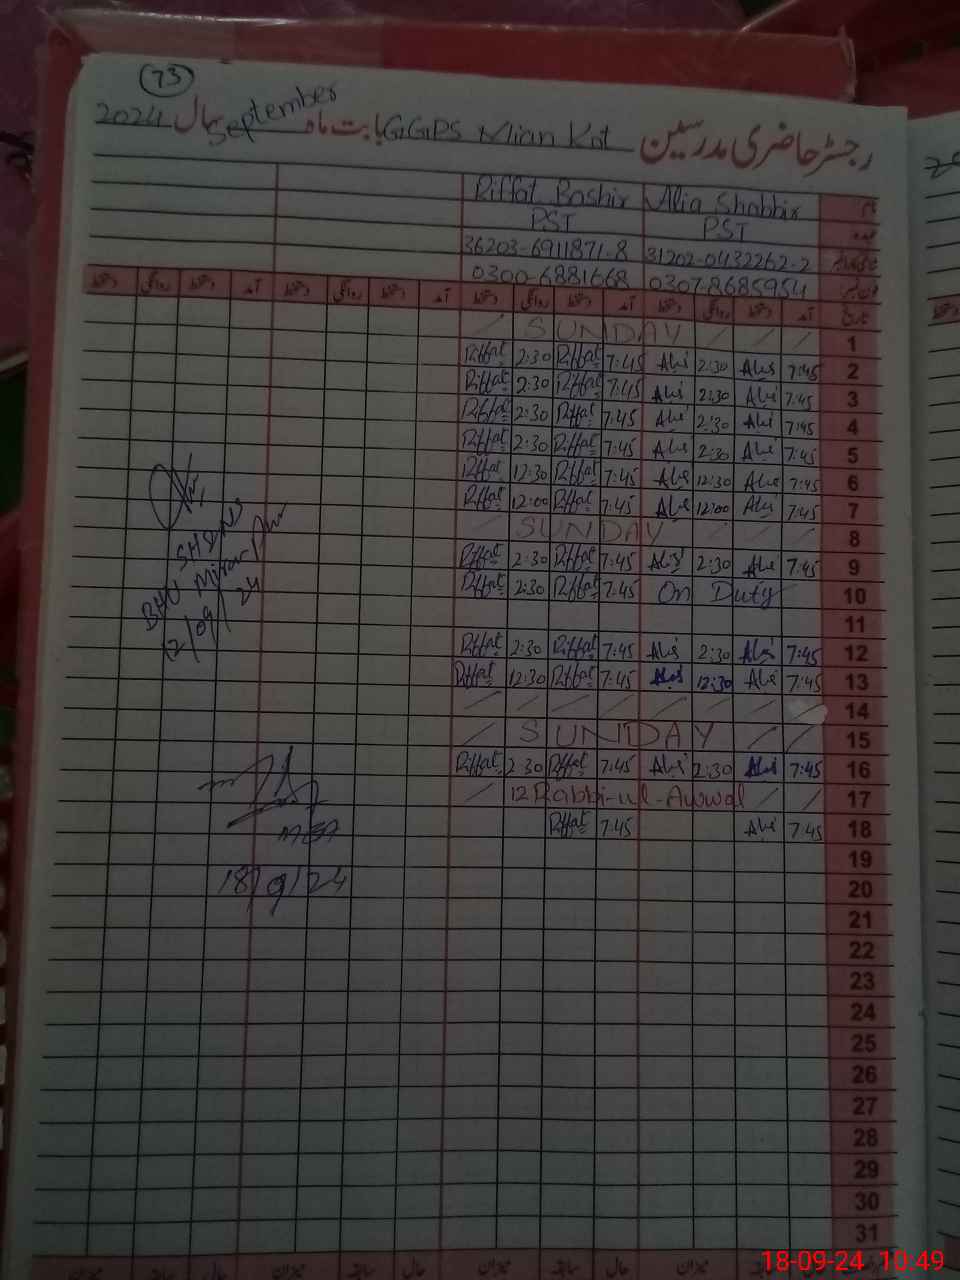 73
رجسٹر حاضری مدرسین GGPS Mian Kot بابت ماہ September سال 2024
نام Alia Shabbir Riffat Bashir
عہدہ PST PST
31202-0432262-2 36203-6911871-8
فون نمبر 0307-8685954 0300-6881668
تاریخ آمد دستخط روانگی دستخط آمد دستخط روانگی دستخط آمد دستخط روانگی دستخط آمد دستخط روانگی دستخط
/ SUNDAY / / / 1
Riffat 2:30 Riffat 7:45 Alia 2:30 Alia 7:45 2
Riffat 2:30 Riffat 7:45 Alia 2:30 Alia 7:45 3
Riffat 2:30 Riffat 7:45 Alia 2:30 Alia 7:45 4
Riffat 2:30 Riffat 7:45 Alia 2:30 Alia 7:45 5
Riffat 12:30 Riffat 7:45 Alia 12:30 Alia 7:45 6
Riffat 12:00 Riffat 7:45 Alia 12:00 Alia 7:45 7
/ SUNDAY / / / 8
Riffat 2:30 Riffat 7:45 Alia 2:30 Alia 7:45 9
Riffat 2:30 Riffat 7:45 On Duty / 10
11
Riffat 2:30 Riffat 7:45 Alia 2:30 Alia 7:45 12
Riffat 12:30 Riffat 7:45 Alia 12:30 Alia 7:45 13
/ / / / / / / / 14
/ SUNDAY / / 15
Riffat 2:30 Riffat 7:45 Alia 2:30 Alia 7:45 16
/ 12 Rabbi-ul-Awwal / / 17
Riffat 7:45 Alia 7:45 18
19
20
21
22
23
24
25
26
27
28
29
30
31
SH&NS
BHU Miran
12/09/24
MEA
18/9/24
میزان سابقہ حال میزان سابقہ حال میزان سابقہ حال میزان سابقہ حال
18-09-24 10:49